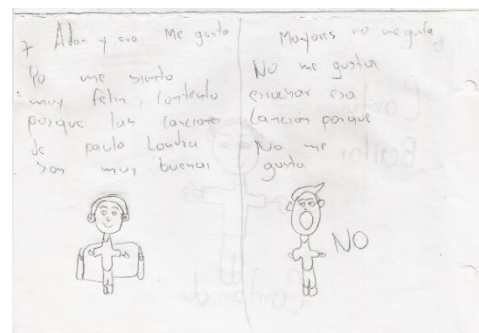 7 Adan y eva Me gusta
Yo me siento
muy felix, contento
porque las cancione
de paulo Londra
son muy buenas
Mayores no me gusta
No me gusta
escuchar esa
cancion porque
No me
gusta
NO